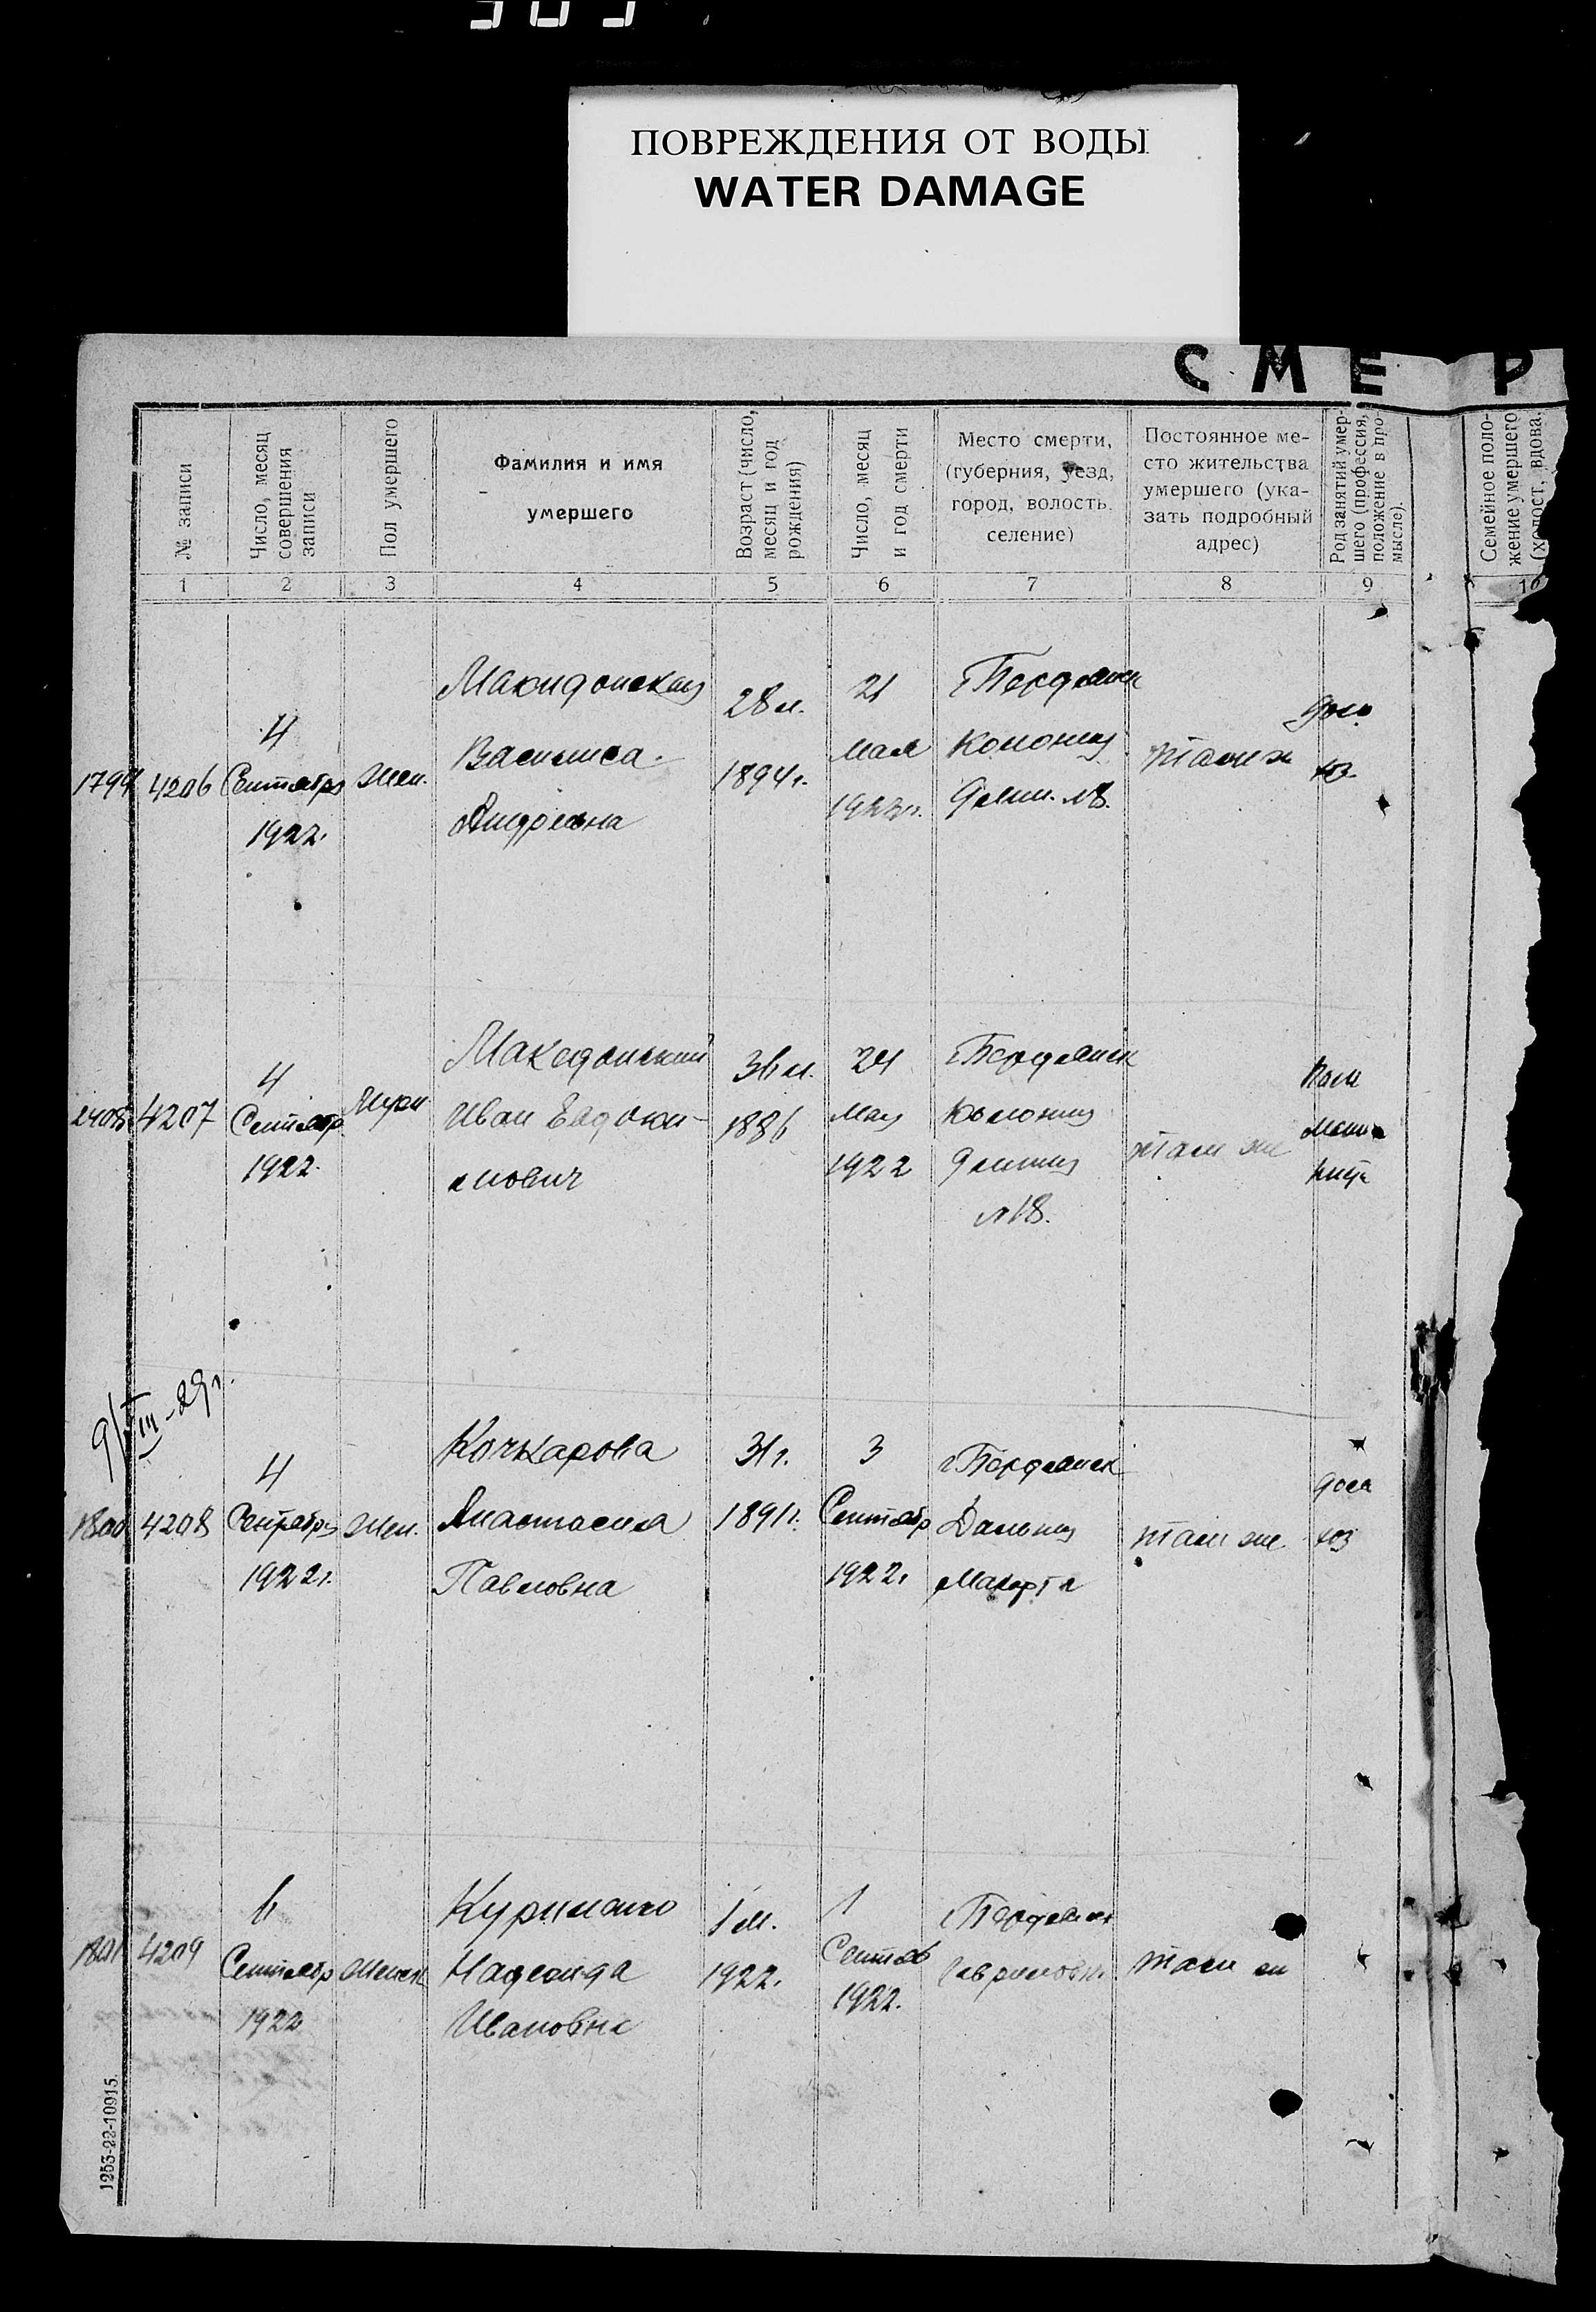 ПОВРЕЖДЕНИЯ ОТ ВОДЫ
WATER DAMAGE
СМЕР
№ записи
Число, месяц
совершения
записи
Пол умершего
Фамилия и имя
умершего
Возраст (число,
месяц и год
рождения)
Число, месяц
и год смерти
Место смерти,
(губерния, уезд,
город, волость,
селение)
Постоянное ме-
сто жительства
умершего (ука-
зать подробный
адрес)
Род занятий умер-
шего (профессия,
положение в про-
мысле).
Семейное поло-
жение умершего
(холост, вдова.
1 2 3 4 5 6 7 8 9 10
4206
4
Сентября
1922.
Жен.
Македонская
Василиса
Андреевна
28 л.
1894 г.
21
Мая
1922 г.
г Бердянск
Колония
там ж
дом
хоз.
4207
4
Сентябр
1922.
Муж
Македонский
Иван Евдоки-
мович
36 л.
1886
24
Мая
1922
г Бердянск
Колония
там же
9/VIII-29 г.
1800
4208
4
Сентябрь
1922 г.
Жен.
Кочкарова
Анастасия
Павловна
31 г.
1891 г.
3
Сентябр
1922 г
г Бердянск
Дальния
Макорта
там же
дом
хоз
1801
4209
6
Сентябр
1922
Женск
Куриленко
Надежда
Ивановна
1 м.
1922.
1
Сентяб
1922.
г Бердянск
там ж
1253-22-10915.